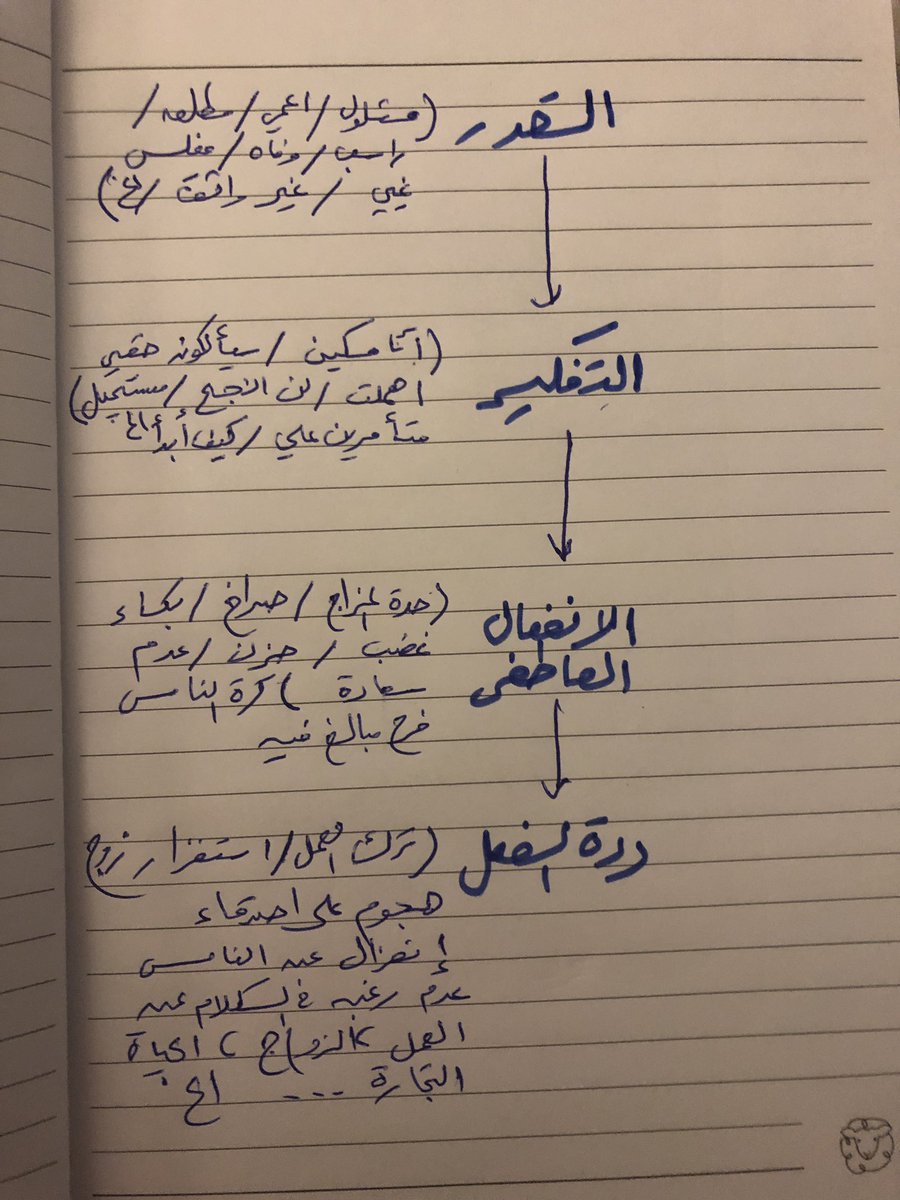 القدر (مشلول / اعمى / مطلقه /
راسب / وفاه / مفلس
غبي / غير واثق / الخ)
التفكير (أنا مسكين / سيأكلونه حقي
اهملت / لن انجح / مستحيل)
متأمرين علي / كيف أبدأ الخ
الانفعال (حدة المزاج / صراخ / بكاء
غضب / حزن / عدم
العاطفي سعادة) كرة الناس
فرح مبالغ فيه
ردة الفعل (ترك العمل / استفزار زوج)
هجوم على اصدقاء
إنعزال عن الناس
عدم رغبه في الكلام عن
العمل، الزواج، الحياة
التجارة --- الخ